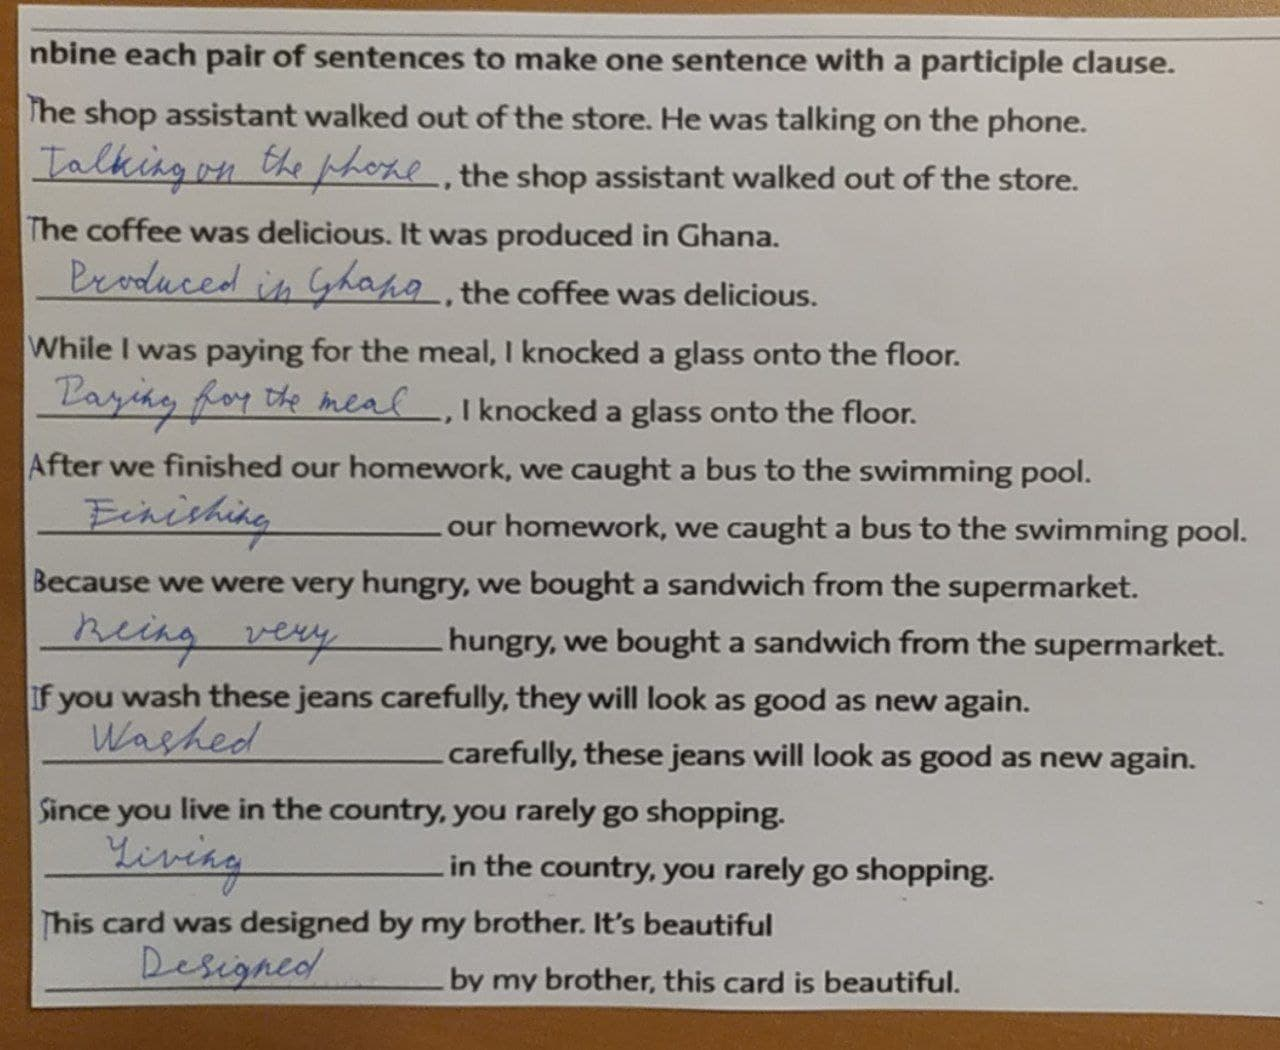 nbine each pair of sentences to make one sentence with a participle clause.
The shop assistant walked out of the store. He was talking on the phone.
Talking on the phone, the shop assistant walked out of the store.
The coffee was delicious. It was produced in Ghana.
Produced in Ghana, the coffee was delicious.
While I was paying for the meal, I knocked a glass onto the floor.
Paying for the meal, I knocked a glass onto the floor.
After we finished our homework, we caught a bus to the swimming pool.
Finishing our homework, we caught a bus to the swimming pool.
Because we were very hungry, we bought a sandwich from the supermarket.
Being very hungry, we bought a sandwich from the supermarket.
If you wash these jeans carefully, they will look as good as new again.
Washed carefully, these jeans will look as good as new again.
Since you live in the country, you rarely go shopping.
Living in the country, you rarely go shopping.
This card was designed by my brother. It's beautiful
Designed by my brother, this card is beautiful.